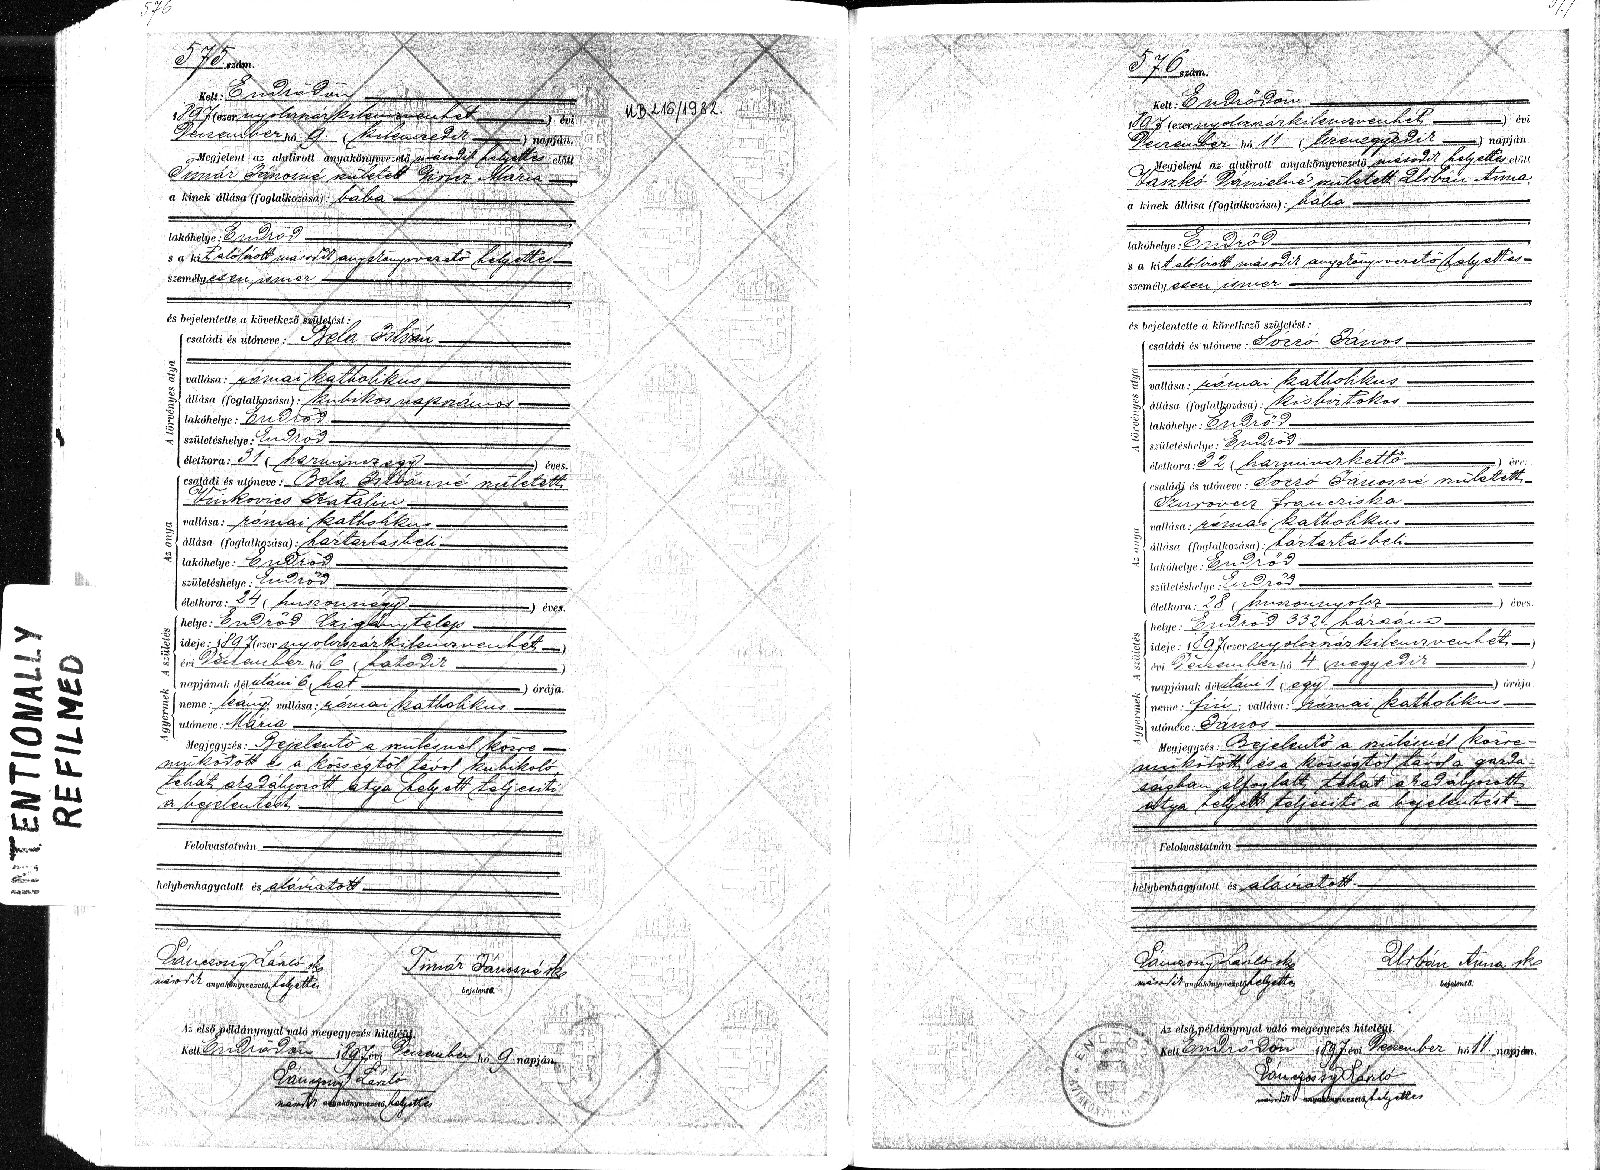 576
575 szám.
ND 216/1932.
Kelt: Endrődön
1897 (ezer nyolczszázkilenczvenhét) évi
Deczember hó 9 (kilenczedik) napján.
Megjelent az alulirott anyakönyvvezető második helyettes előtt
Timár Jánosné született Mária
a kinek állása (foglalkozása): bába
lakóhelye: Endrőd
s a kit alólirott második anyakönyvvezető helyettes
személyesen ismer
és bejelentette a következő születést:
A törvényes atya
családi és utóneve: Bela István
vallása: római katholikus
állása (foglalkozása): kubikos napszámos
lakóhelye: Endrőd
születéshelye: Endrőd
életkora: 31 (harminczegy) éves.
Az anya
családi és utóneve: Bela Istvánné született
Vinkovics Katalin
vallása: római katholikus
állása (foglalkozása): háztartásbeli
lakóhelye: Endrőd
születéshelye: Endrőd
életkora: 24 (huszonnégy) éves.
A születés
helye: Endrőd Czigánytelep
ideje: 1897 (ezer nyolczszázkilenczvenhét)
évi Deczember hó 6 (hatodik)
napjának délutáni 6 (hat) órája.
A gyermek
neme: leány; vallása: római katholikus
utóneve: Mária
Megjegyzés: Bejelentő a szülésnél közre
működött s a községtől távol kubikoló
tehát akadályozott atya helyett teljesíti
a bejelentést.
Felolvastatván
helybenhagyatott és aláiratott
Lánczony László sk
második anyakönyvvezető helyettes
Timár Jánosné sk
bejelentő.
Az első példánynyal való megegyezés hiteléül.
Kelt Endrődön 1897 évi Deczember hó 9 napján.
Lánczony László
második anyakönyvvezető helyettes
INTENTIONALLY
REFILMED
576 szám.
Kelt: Endrődön
1897 (ezer nyolczszázkilenczvenhét) évi
Deczember hó 11 (tizenegyedik) napján
Megjelent az alulirott anyakönyvvezető második helyettes előtt
Vaszkó Dánielné született Urbán Anna
a kinek állása (foglalkozása): bába
lakóhelye: Endrőd
s a kit alólirott második anyakönyvvezető helyettes
személyesen ismer
és bejelentette a következő születést:
A törvényes atya
családi és utóneve: Soczó János
vallása: római katholikus
állása (foglalkozása): kisbirtokos
lakóhelye: Endrőd
születéshelye: Endrőd
életkora: 32 (harminczkettő) éves.
Az anya
családi és utóneve: Soczó Jánosné született
Francziska
vallása: római katholikus
állása (foglalkozása): háztartásbeli
lakóhelye: Endrőd
születéshelye: Endrőd
életkora: 28 (huszonnyolcz) éves.
A születés
helye: Endrőd 332. házszám
ideje: 1897 (ezer nyolczszázkilenczvenhét)
évi Deczember hó 4 (negyedik)
napjának délutáni 1 (egy) órája
A gyermek
neme: fiú; vallása: római katholikus
utóneve: János
Megjegyzés: Bejelentő a szülésnél közre-
működött, és a községtől távol a gazda-
ságban elfoglalt, tehát akadályozott
atya helyett teljesíti a bejelentést.
Felolvastatván
helybenhagyatott és aláiratott.
Lánczony László sk
második anyakönyvvezető helyettes
Urbán Anna sk
bejelentő.
Az első példánynyal való megegyezés hiteléül.
Kelt Endrődön 1897 évi Deczember hó 11 napján.
Lánczony László
második anyakönyvvezető helyettes